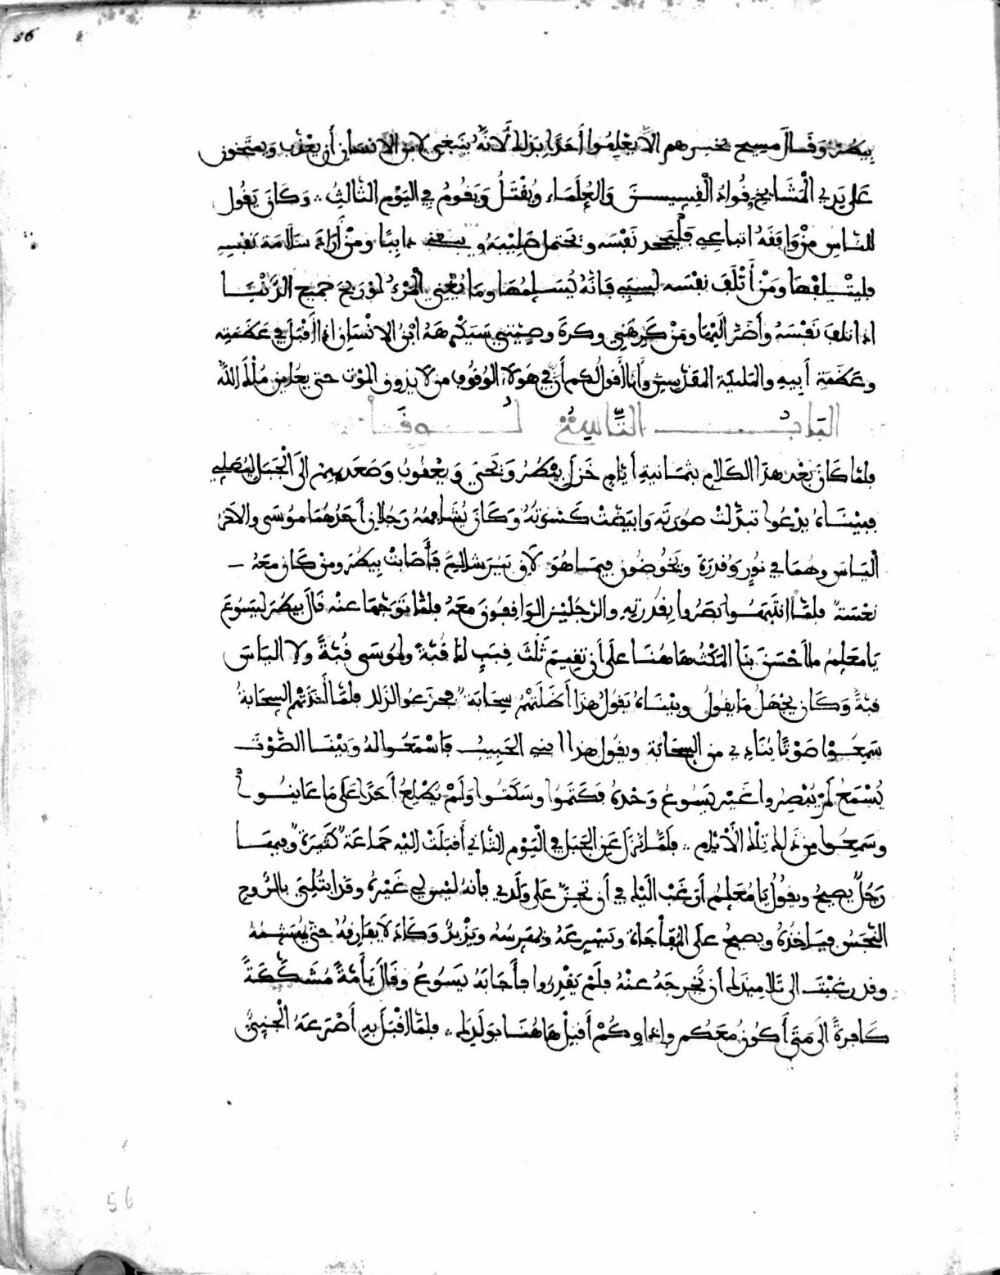 56
بيطر وقال مسيح نخبرهم الا يعلموا احدا بذلك لانه ينبغي لابن الانسان أن يعذب ويستخون
على يدي المشايخ وقواد القسيسين والعلماء ويقتل ويقوم في اليوم الثالث ∴ وكان يقول
للناس من وافقه اتباعي فليجحد نفسه وتحتمل صليبه ويتبعني دايبا ومن أراد سلامة نفسه
فليتلفها ومن أتلف نفسه لسببي فانه يسلمها وما يغني المرء لو ربح جميع الدنيا
اذا اتلف نفسه وأضر اليها ومن كرهني وكره وصيتي سيكرهه ابن الانسان اذا أقبل في عظمته
وعظمة أبيه والملايكة المقدسين وأنا أقول لكم أن في هولاء الوقوف من لا يذوق الموت حتى يعاين ملك الله
الباب التاسع لوقا
فلما كان بعد هذا الكلام بثمانية أيام خزل بيطر ويحيى ويعقوب وصعد بهم الى الجبل ليصلي
فبينما يدعوا تبدلت صورته وابيضت كسوته وكان يشاهه رجلان أحدهما موسى والاخر
الياس وهما في نور وقدرة ويخوضون فيما هو لاق بيرشلايم فأصابت بيطر ومن كان معه
نعسة فلما انتبهوا بصروا بقدرته والرجلين الواقفون معه فلما توجها عنه قال بيطر ليسوع
يا معلم ما احسن بنا المكث هاهنا على أن نقيم ثلث قبب لك قبة ولموسى قبة ولالياس
قبة وكان يجهل ما يقول وبينما يقول هذا أظلتهم سحابة فجزعوا لذلك فلما أخذتهم السحابة
سمعوا صوتا ينادي من السحابة ويقول هذا ابني الحبيب فاستمعوا له وبينا الصوت
يسمع لم يبصروا غير يسوع وحده فكتموا وسكتوا ولم يطلع أحدا على ما عاينوا
وسمعوا من ذلك تلك الأيام ∴ فلما نزل عن الجبل في اليوم الثاني أقبلت اليه جماعة كثيرة وفيها
رجل يصيح ويقول يا معلم أرغب اليك في أن تحن على ولدي فأنه ليس لي غيره وقد ابتلي بالروح
النجس فياخذه ويصيح على المفاجاة ويصرعه ويمرسه ويزبد وكاد لا يفارقه حتى يهشمه
وقد رغبت الى تلاميذك أن تخرجه عنه فلم يقدروا فأجابه يسوع وقال يا أمة مشككة
كافرة الى متى أكون معكم واداويكم أقبل هاهنا بولدك ∴ فلما اقبل به أصرعه الجني
56